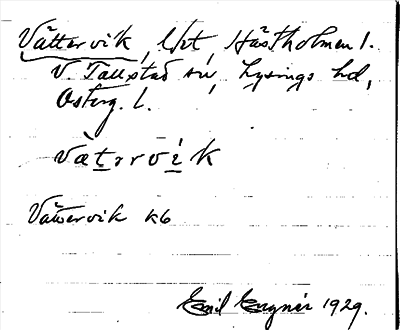 Vättervik, lht, Hästholmen l.
V. Tollstad sn, Lysings hd,
Österg. l.
vätərvik
Vättervik k6
Emil Engnér 1929.